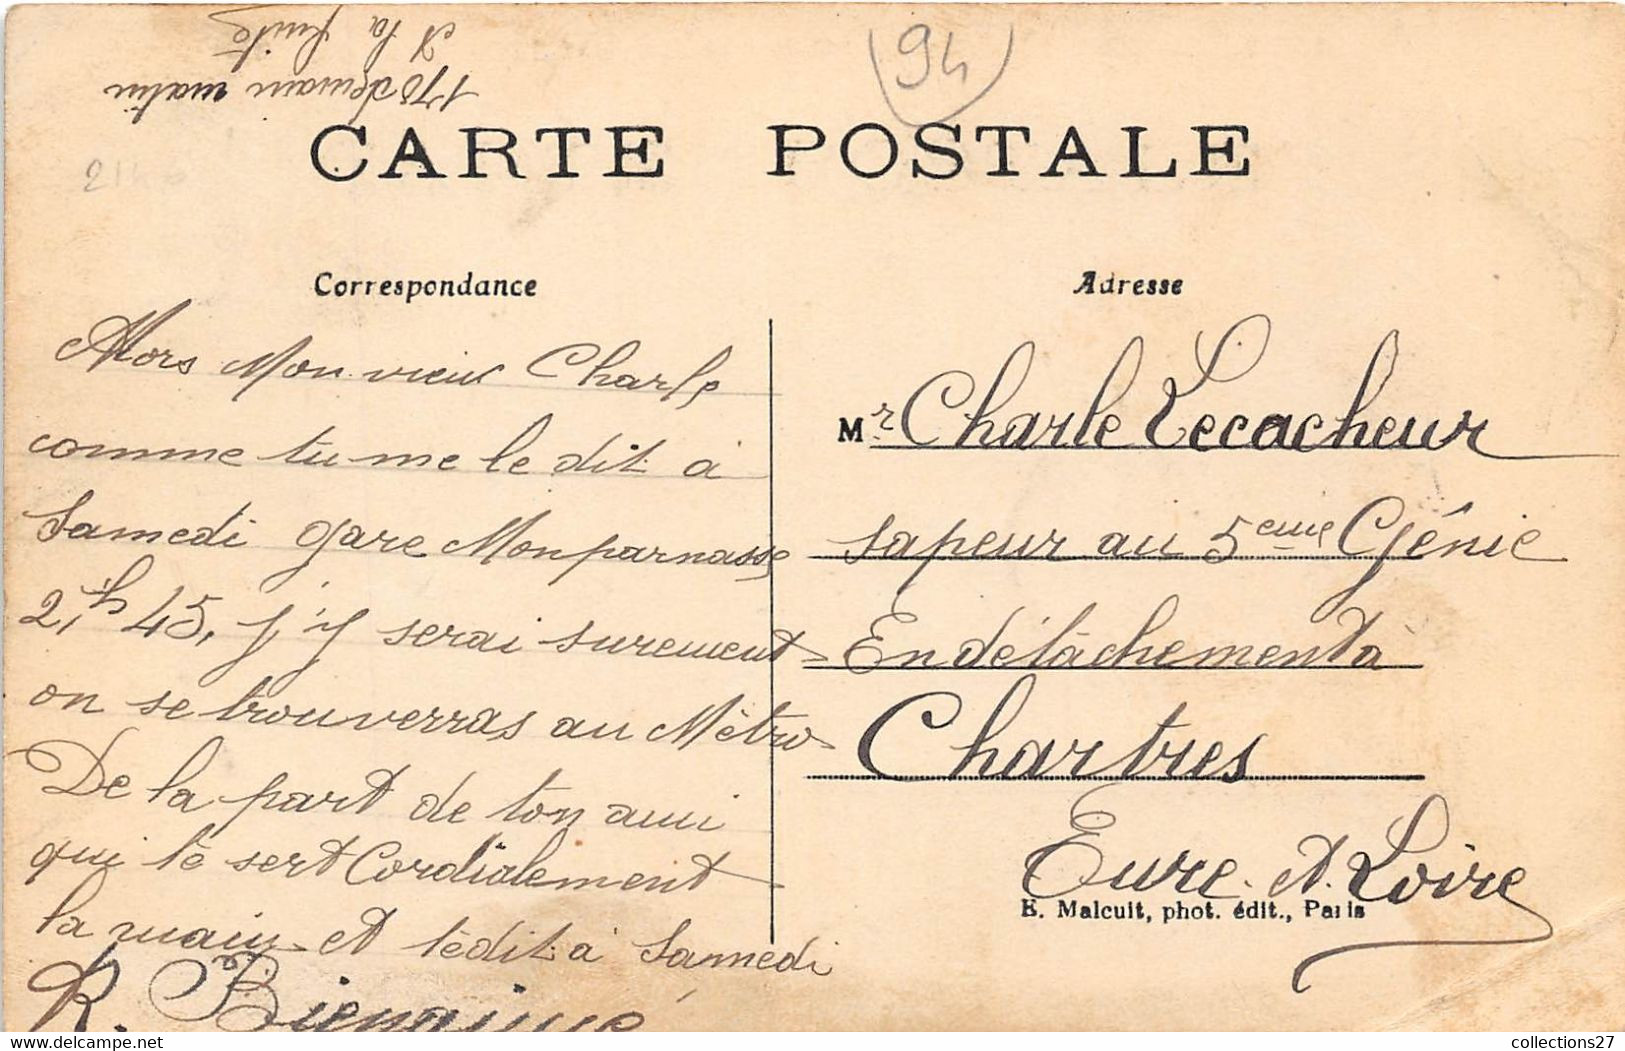 175 demain matin
et la fuite
94
21h
CARTE POSTALE
Correspondance
Alors Mon vieux Charle
comme tu me le dit a
Samedi gare Monparnasse
21h 45, j'y serai surement
on se trouverras au Mètro
De la part de ton ami
qui te sert Cordialement
la main et tèdit a Samedi
R. Bienaimé
Adresse
Mr Charle Lecacheur
sapeur au 5eme Génie
En détachement à
Chartres
Eure et Loire
E. Malcuit, phot. édit., Paris
collections27